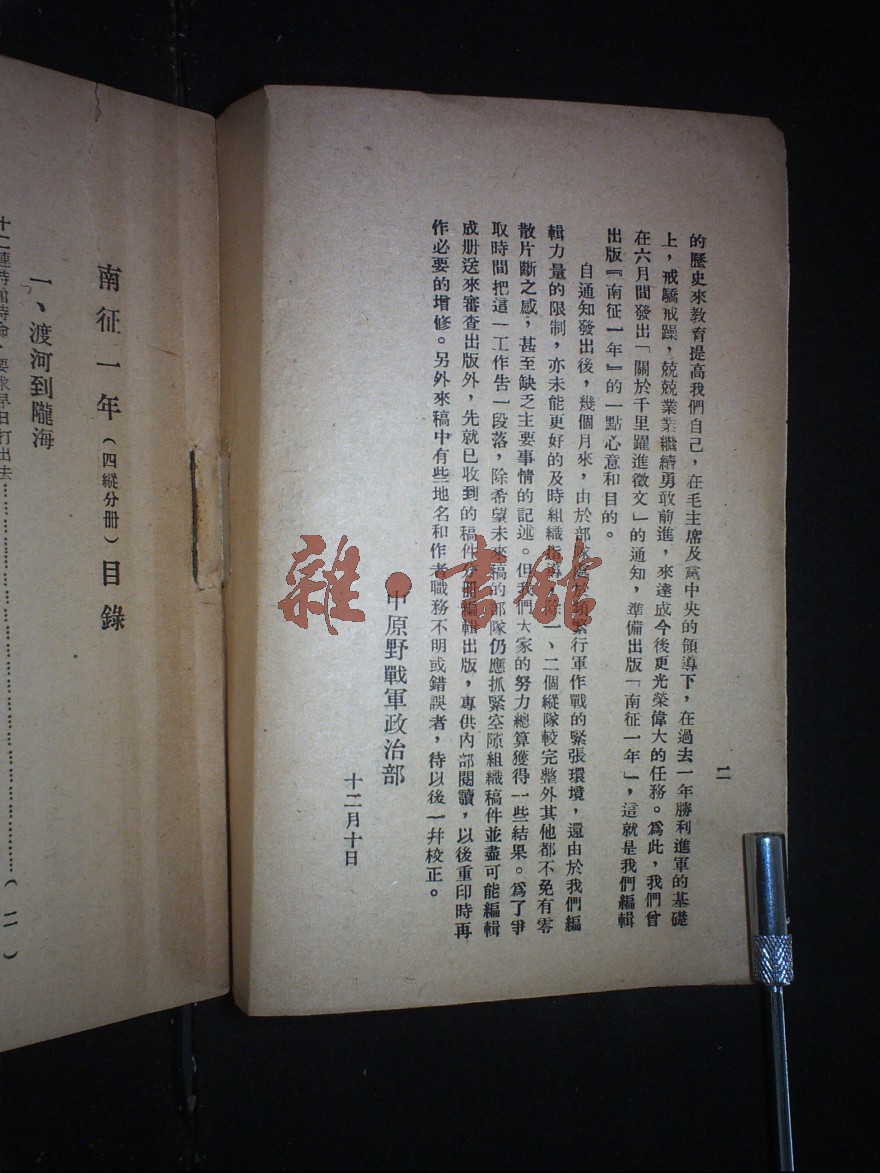 二
的歷史來教育提高我們自己，在毛主席及黨中央的領導下，在過去一年勝利進軍的基礎
上，戒驕戒躁，兢兢業業繼續勇敢前進，來達成今後更光榮偉大的任務。爲此，我們曾
在六月間發出「關於千里躍進徵文」的通知，準備出版「南征一年」，這就是我們編輯
出版『南征一年』的一點心意和目的。
自通知發出後，幾個月來，由於部隊處於頻繁行軍作戰的緊張環境，還由於我們編
輯力量的限制，亦未能更好的及時組織指導，除一、二個縱隊較完整外其他都不免有零
散片斷之感，甚至缺乏主要事情的記述。但我們大家的努力總算獲得一些結果。爲了爭
取時間把這一工作告一段落，除希望未來稿的部隊仍應抓緊空隙組織稿件並盡可能編輯
成册送來審查出版外，先就已收到的稿件分冊編輯出版，專供內部閱讀，以後重印時再
作必要的增修。另外來稿中有些地名和作者職務不明或錯誤者，待以後一幷校正。
中原野戰軍政治部
十二月十日
南征一年（四縱分册）目錄
一、渡河到隴海
要求早日打出去……………………（一）
雜·書館